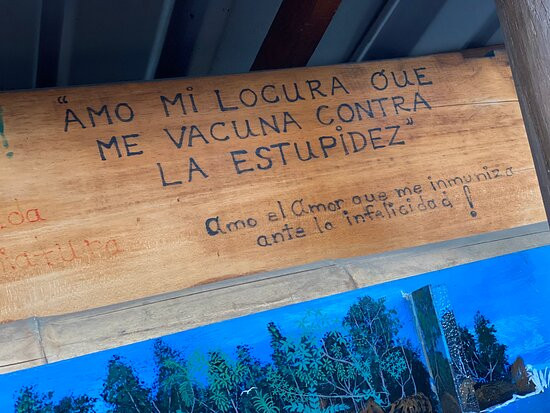 "AMO MI LOCURA QUE
ME VACUNA CONTRA
LA ESTUPIDEZ"
Amo el Amor que me inmuniza
ante la infelicidad!